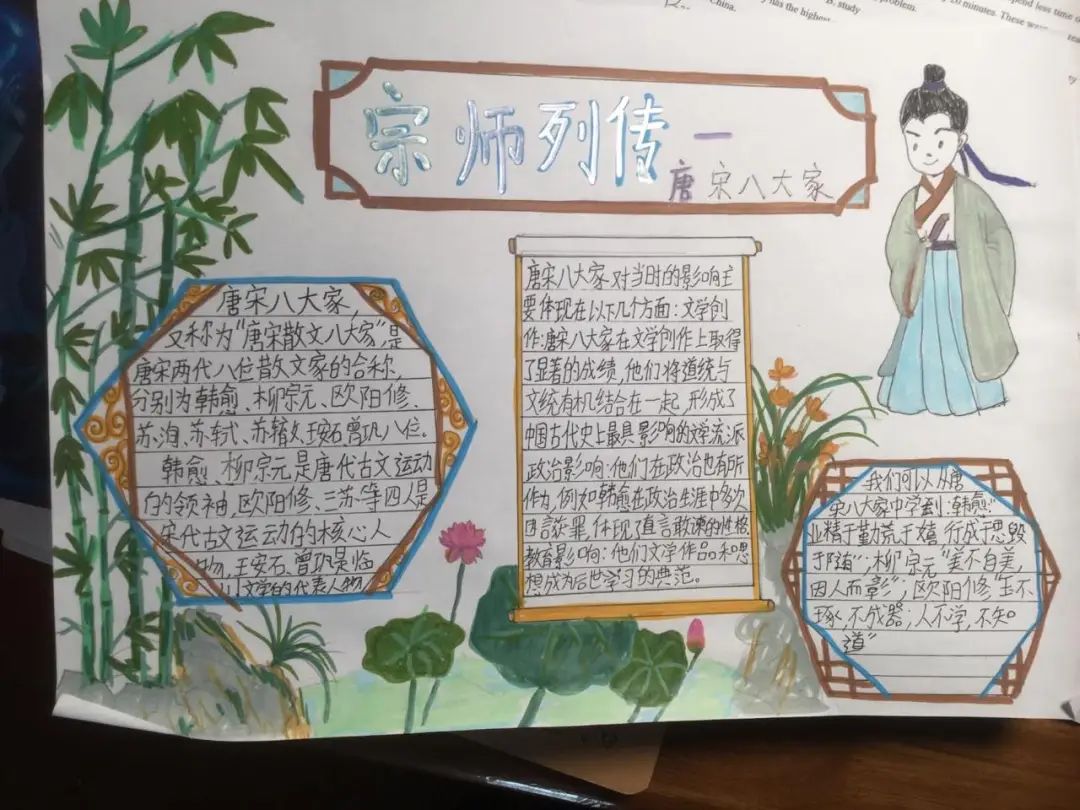 pend less time o
20 minutes. These were
problem.
B. study
has the highest
China.
宗师列传一
唐宋八大家
唐宋八大家,
又称为"唐宋散文八大家",是
唐宋两代八位散文家的合称,
分别为韩愈、柳宗元、欧阳修、
苏洵、苏轼、苏辙、王安石、曾巩八位。
韩愈、柳宗元是唐代古文运动
的领袖,欧阳修、三苏等四人是
宋代古文运动的核心人
物,王安石、曾巩是临
川文学的代表人物
唐宋八大家对当时的影响主
要体现在以下几个方面:文学创
作:唐宋八大家在文学创作上取得
了显著的成绩,他们将道统与
文统有机结合在一起,形成了
中国古代史上最具影响的文学流派
政治影响:他们在政治也有所
作为,例如韩愈在政治生涯中多次
因言获罪,体现了直言敢谏的性格
教育影响:他们文学作品和思
想成为后世学习的典范。
我们可以从唐
宋八大家中学到:韩愈"
业精于勤荒于嬉 行成于思毁
于随";柳宗元"美不自美,
因人而彰";欧阳修"玉不
琢,不成器;人不学,不知
道"